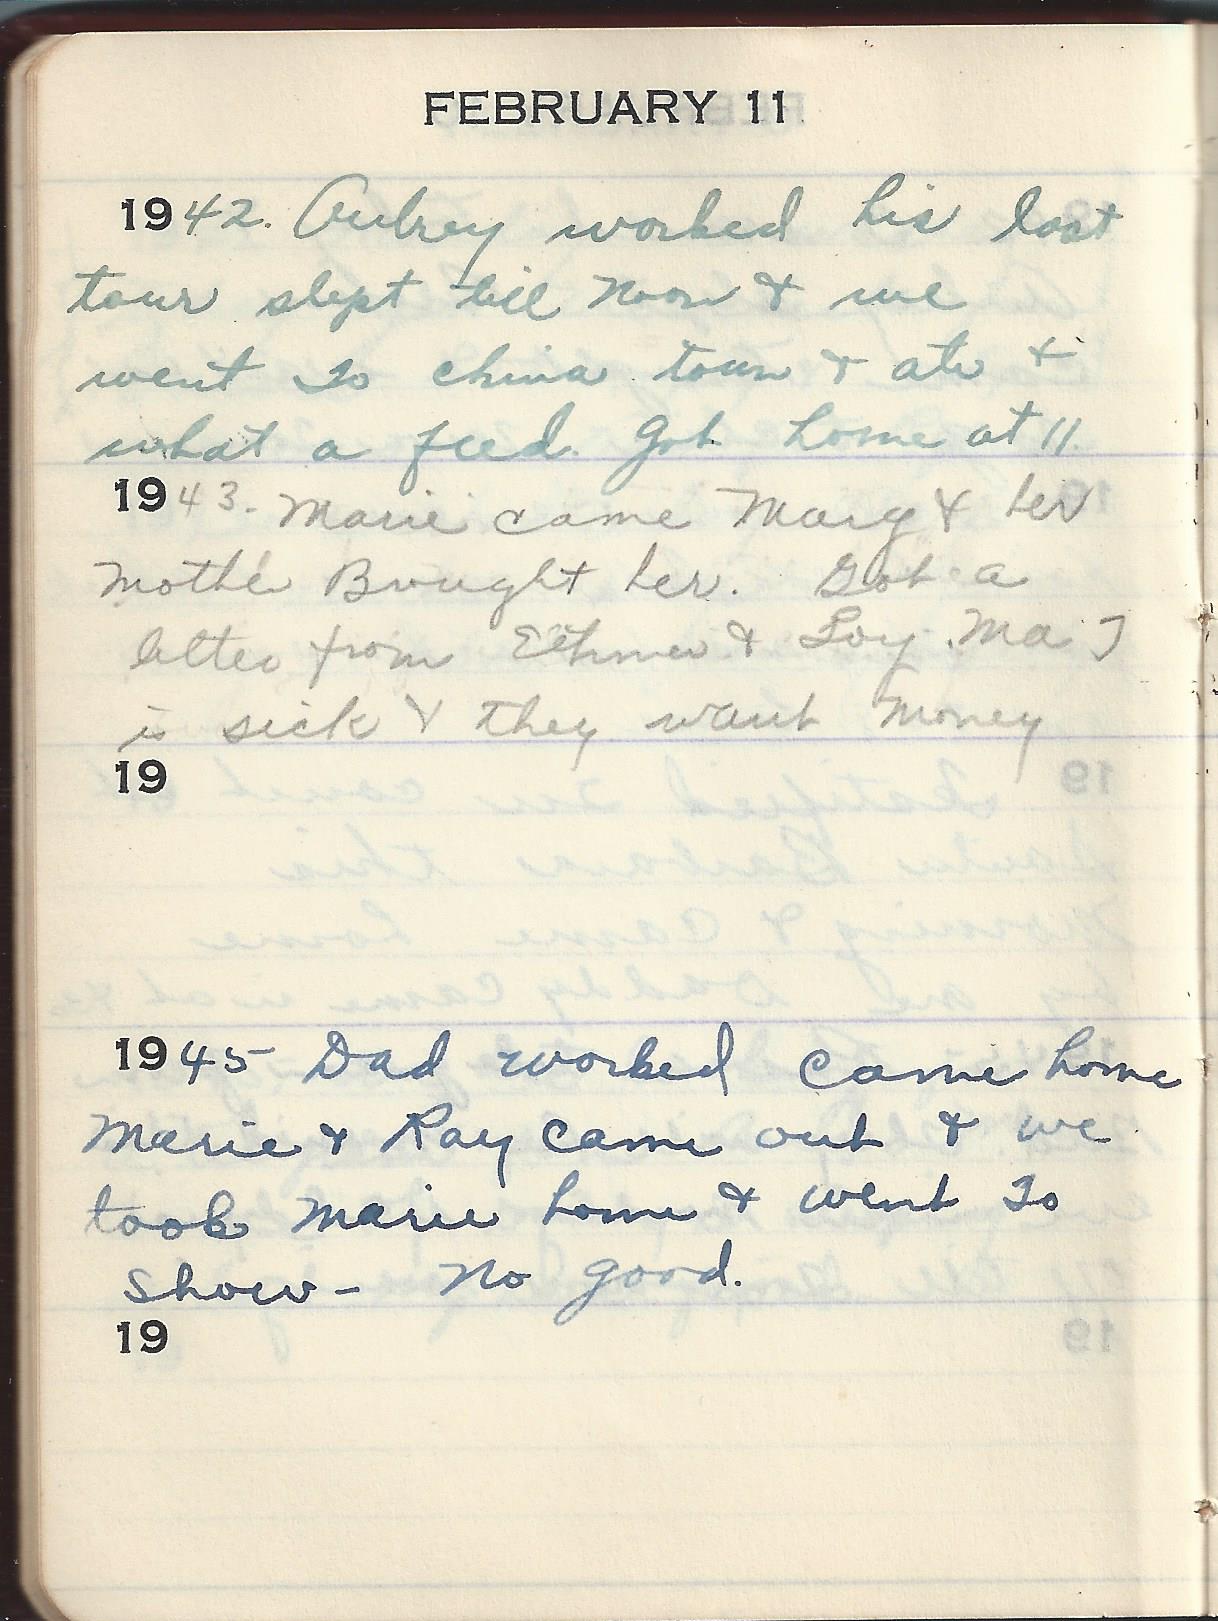 FEBRUARY 11
1942. Aubrey worked his last
tour slept till noon & we
went to china town & ate &
what a feed. Got home at 11.
1943. Marie came Marg & her
Mother Brought her. Got a
letter from & Loy. Ma J
is sick & they want money
19
1945 Dad worked came home
Marie & Ray came out & we
took Marie home & went to
show - No good.
19